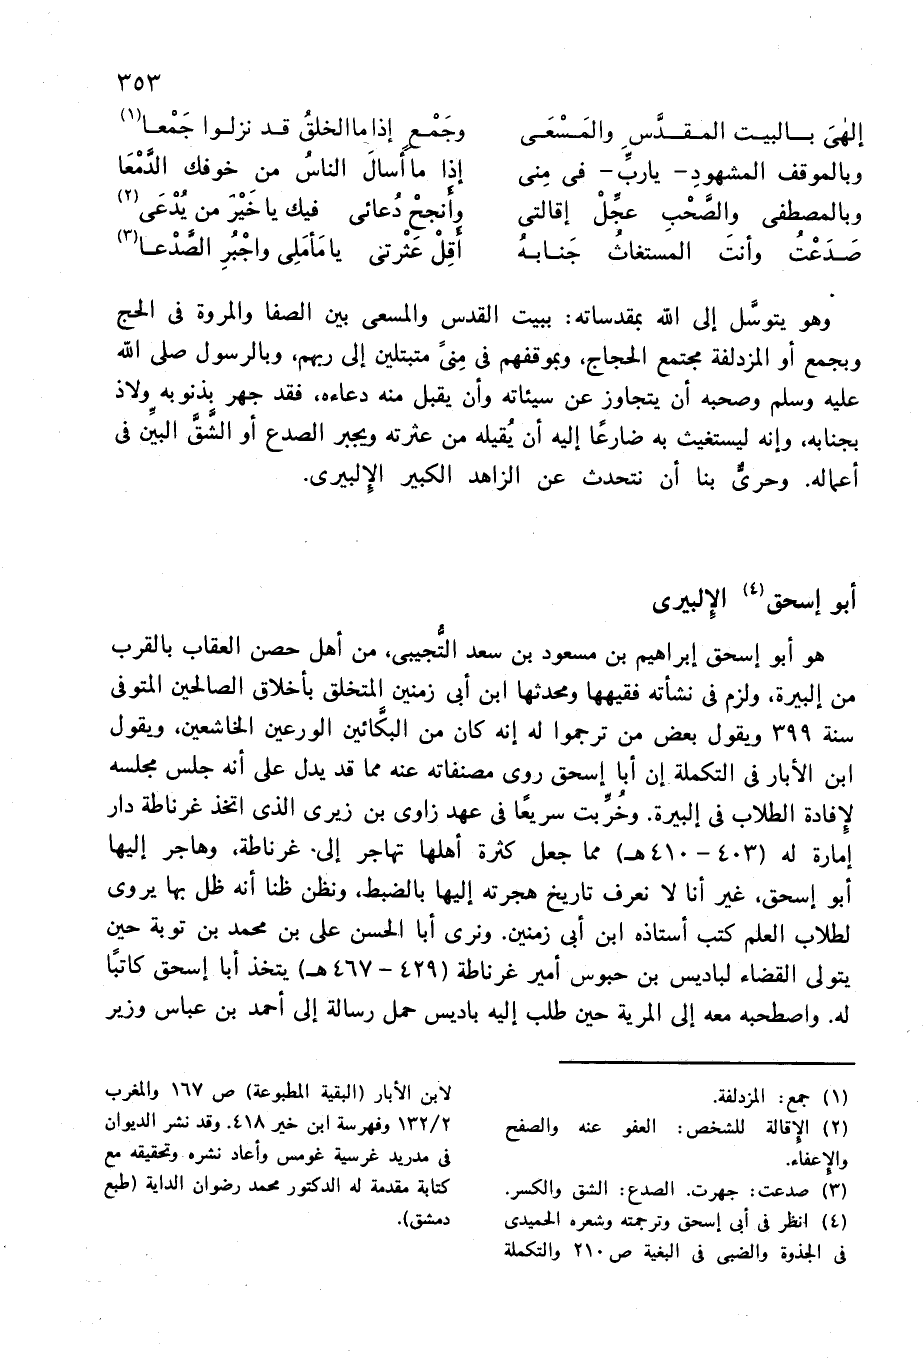 ٣٥٣
إلهىَ بـالبيت المقـدَّس والمَسْعَى وجَمْعٍ إذا ما الخلقُ قد نزلوا جَمْعا(١)
وبالموقف المشهودِ- ياربِّ- فى مِنى إذا ما أسالَ الناسُ من خوفك الدَّمْعَا
وبالمصطفى والصَّحْبِ عجِّلْ إقالتى وأَنجحْ دُعائى فيك يا خَيْرَ من يُدْعَى(٢)
صَدَعْتُ وأنتَ المستغاثُ جَنابهُ أَقِلْ عَثْرتى يا مَأمَلِى واجْبُرِ الصَّدْعا(٣)
وهو يتوسَّل إلى الله بمقدساته: ببيت القدس والمسعى بين الصفا والمروة فى الحج
وبجمع أو المزدلفة مجتمع الحجاج، وبموقفهم فى مِنىً متبتلين إلى ربهم، وبالرسول صلى الله
عليه وسلم وصحبه أن يتجاوز عن سيئاته وأن يقبل منه دعاءه، فقد جهر بذنوبه ولاذ
بجنابه، وإنه ليستغيث به ضارعًا إليه أن يُقيله من عثرته ويجبر الصدع أو الشَّقَّ البيِّن فى
أعماله. وحرىٌّ بنا أن نتحدث عن الزاهد الكبير الإلبيرى.
أبو إسحق(٤) الإلبيرى
هو أبو إسحق إبراهيم بن مسعود بن سعد التُّجيبى، من أهل حصن العقاب بالقرب
من إلبيرة، ولزم فى نشأته فقيهها ومحدثها ابن أبى زمنين المتخلق بأخلاق الصالحين المتوفى
سنة ٣٩٩ ويقول بعض من ترجموا له إنه كان من البكَّائين الورعين الخاشعين، ويقول
ابن الأبار فى التكملة إن أبا إسحق روى مصنفاته عنه مما قد يدل على أنه جلس مجلسه
لإفادة الطلاب فى إلبيرة. وخُرِّبت سريعًا فى عهد زاوى بن زيرى الذى اتخذ غرناطة دار
إمارة له (٤٠٣ - ٤١٠هـ) مما جعل كثرة أهلها تهاجر إلى غرناطة، وهاجر إليها
أبو إسحق، غير أنا لا نعرف تاريخ هجرته إليها بالضبط، ونظن ظنا أنه ظل بها يروى
لطلاب العلم كتب أستاذه ابن أبى زمنين. ونرى أبا الحسن على بن محمد بن توبة حين
يتولى القضاء لباديس بن حبوس أمير غرناطة (٤٢٩ - ٤٦٧هـ) يتخذ أبا إسحق كاتبًا
له. واصطحبه معه إلى المرية حين طلب إليه باديس حمل رسالة إلى أحمد بن عباس وزير
(١) جمع: المزدلفة.
(٢) الإقالة للشخص: العفو عنه والصفح
والإعفاء.
(٣) صدعت: جهرت. الصدع: الشق والكسر.
(٤) انظر فى أبى إسحق وترجمته وشعره الحميدى
فى الجذوة والضبى فى البغية ص ٢١٠ والتكملة
لابن الأبار (البقية المطبوعة) ص ١٦٧ والمغرب
١٣٢/٢ وفهرسة ابن خير ٤١٨. وقد نشر الديوان
فى مدريد غرسية غومس وأعاد نشره وتحقيقه مع
كتابة مقدمة له الدكتور محمد رضوان الداية (طبع
دمشق).